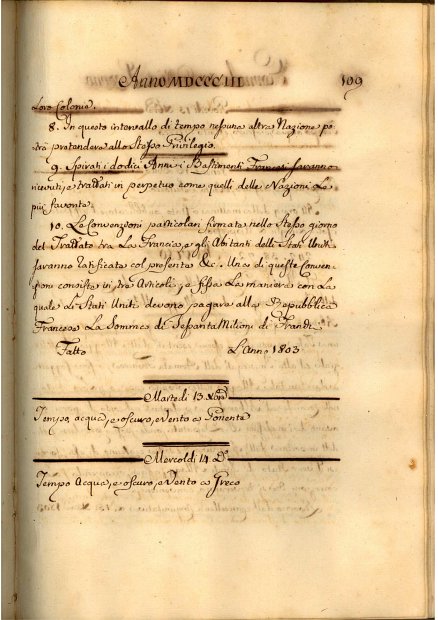 Anno MDCCCIII 109
Loro Colonie.
8. In questo intervallo di tempo nessuna altra Nazione po
trà pretendere allo Stesso Privilegio.
9. Spirati i dodici Anni i Bastimenti Francesi saranno
ricevuti, e trattati in perpetuo come quelli delle Nazioni Le
più favorite.
10. Le Convenzioni particolari firmate nello Stesso giorno
del Trattato tra La Francia, e gli Abitanti delli Stati Uniti
saranno ratificate col presente &c. Una di queste Conven
sioni consiste in tre Articoli, e fissa La maniera con La
quale li Stati Uniti devono pagare alla Repubblica
Francese La Somma di Sessanta Milioni di Franchi
Fatto L'Anno 1803
Martedì 13 
Tempo acqua, e oscuro, e Vento a Ponente
Mercoldì 14 Do
Tempo Acqua, e oscuro, e Vento a Greco